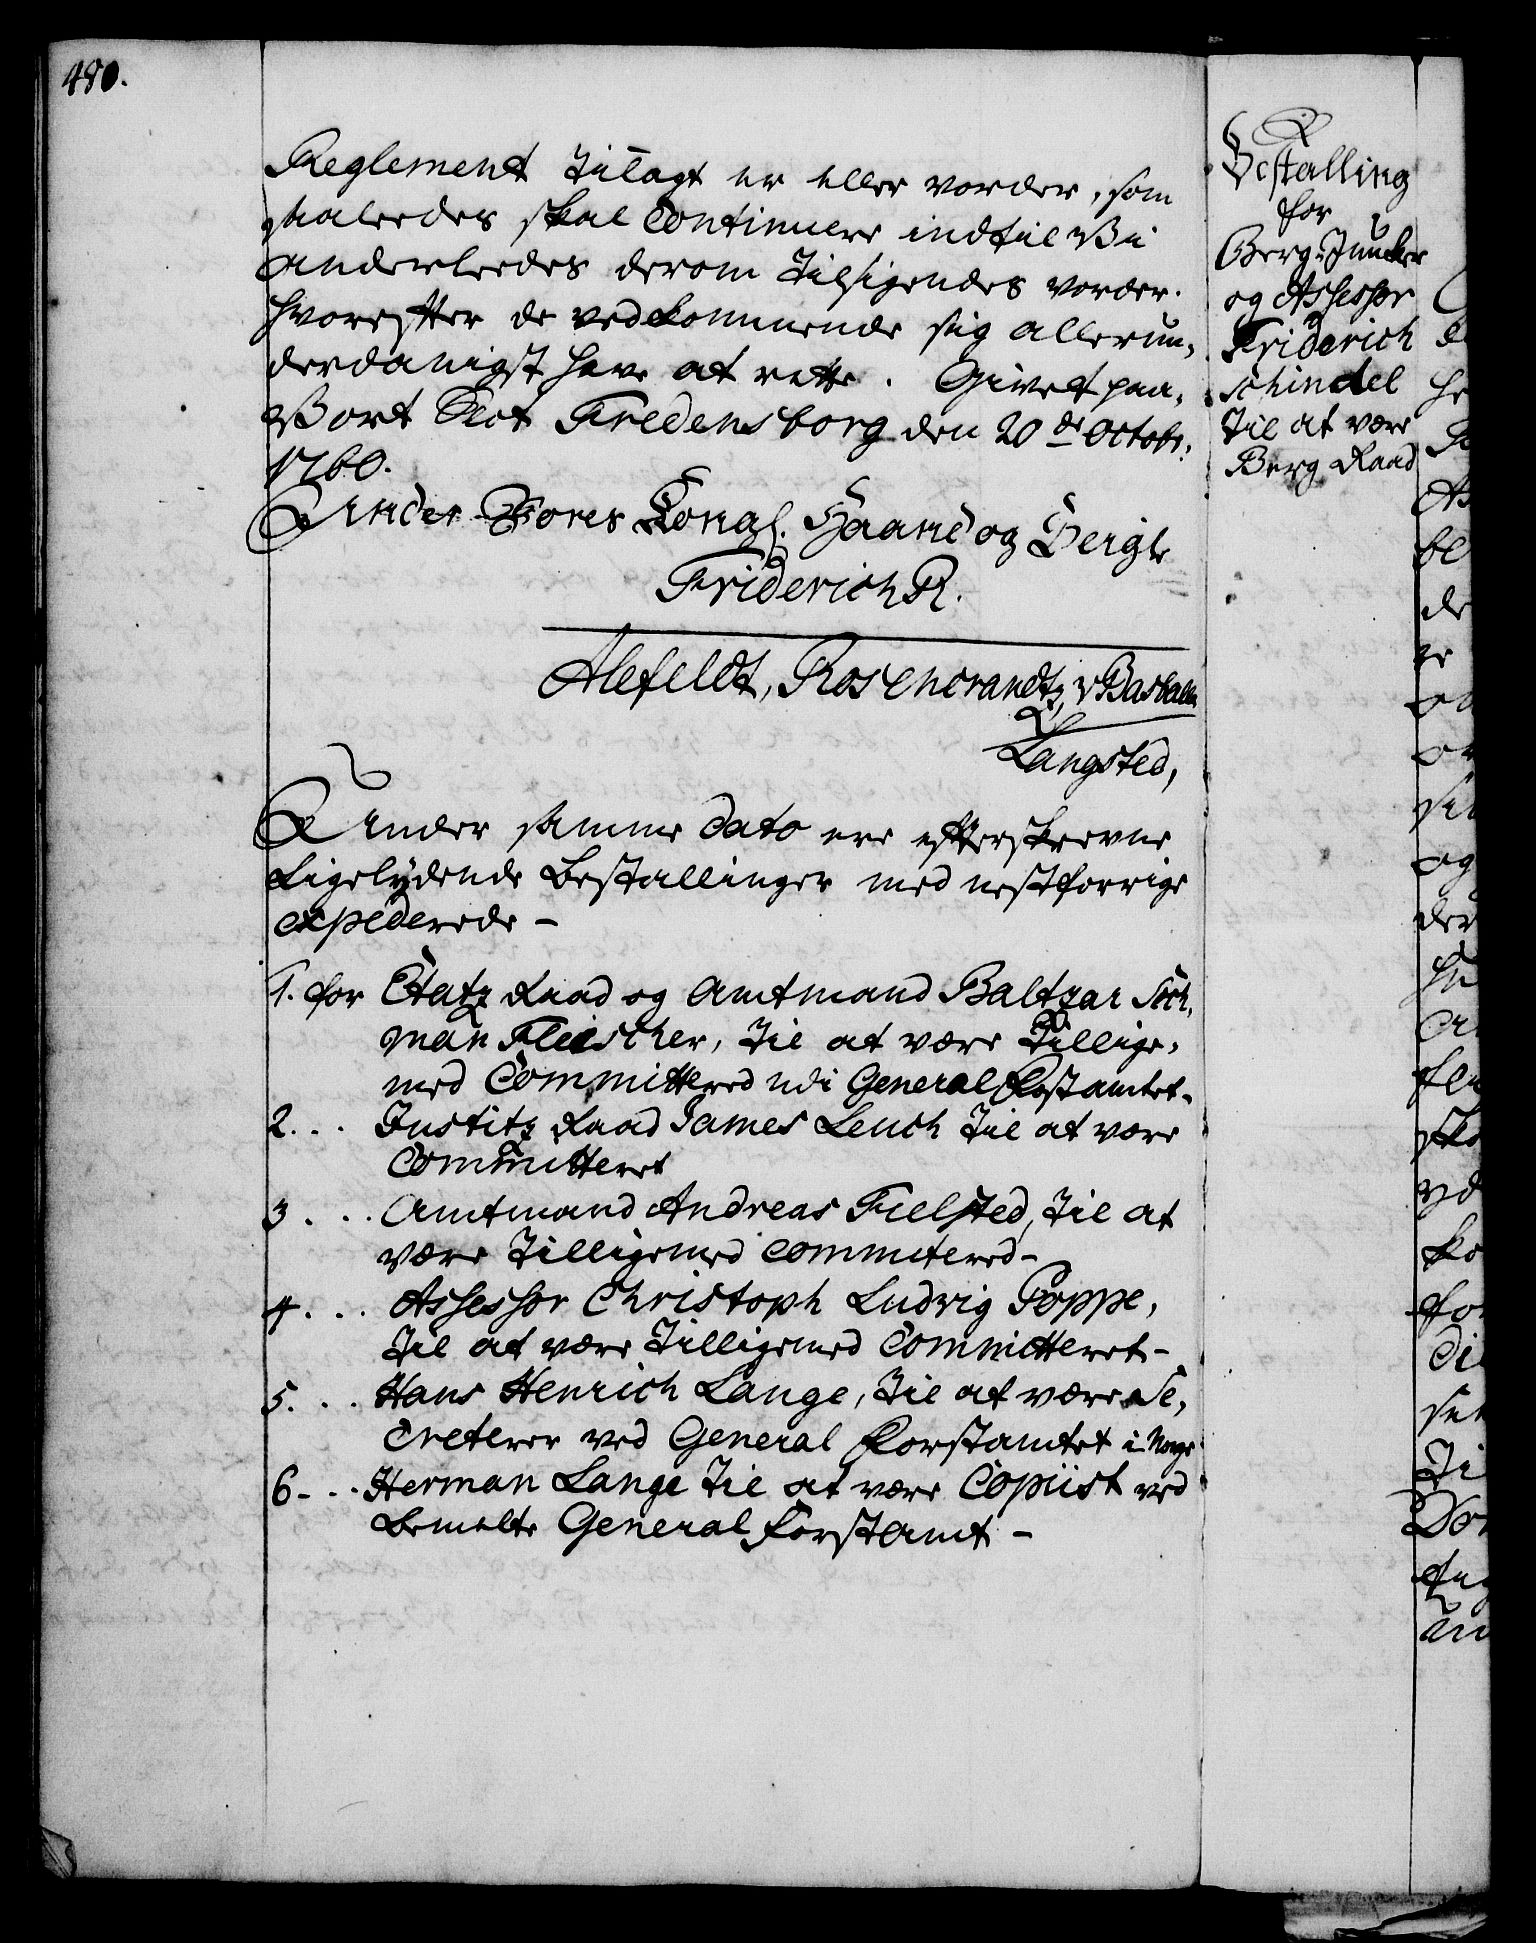 480.
Reglement tillagt er eller vorder, som
saaleedes skal Continuere indtil Vi
anderleedes derom tilsigendes vorder.
Hvorefter de vedkommende sig allerun-
derdanigst have at rette. Givet paa
Vort Slot Fredensborg den 20 de Octobr:
1760.
Under Vores Kongl. Haand og Seigl.
Friderich R.
Alefeldt, Rosencrandtz, v Basballe
Langsted,
Under samme dato ere efterskrevne
Ligelydende Bestallinger med nestforrige
expederede -
1. for Etatz Raad og Amtmand Baltzar Söch,
man Fleischer, til at være Tillige,
med Committered udi General Forstamtet.
2... Justitz Raad James Leuch til at være
Committeret
3... Amtmand Andreas Fielsted, til at
være tilligemed Committered-
4... Assessor Christoph Ludvig Poppe,
til at være tilligemed Committeret-
5... Hans Henrich Lange, til at være Se,
creterer ved General Forstamtet i Norge
6... Herman Lange til at være Copiist ved
bemelte General Forstamt -
Bestalling
for
Berg-Juncker
og Assessor
Friderich
Schindel
til at være
Berg Raad